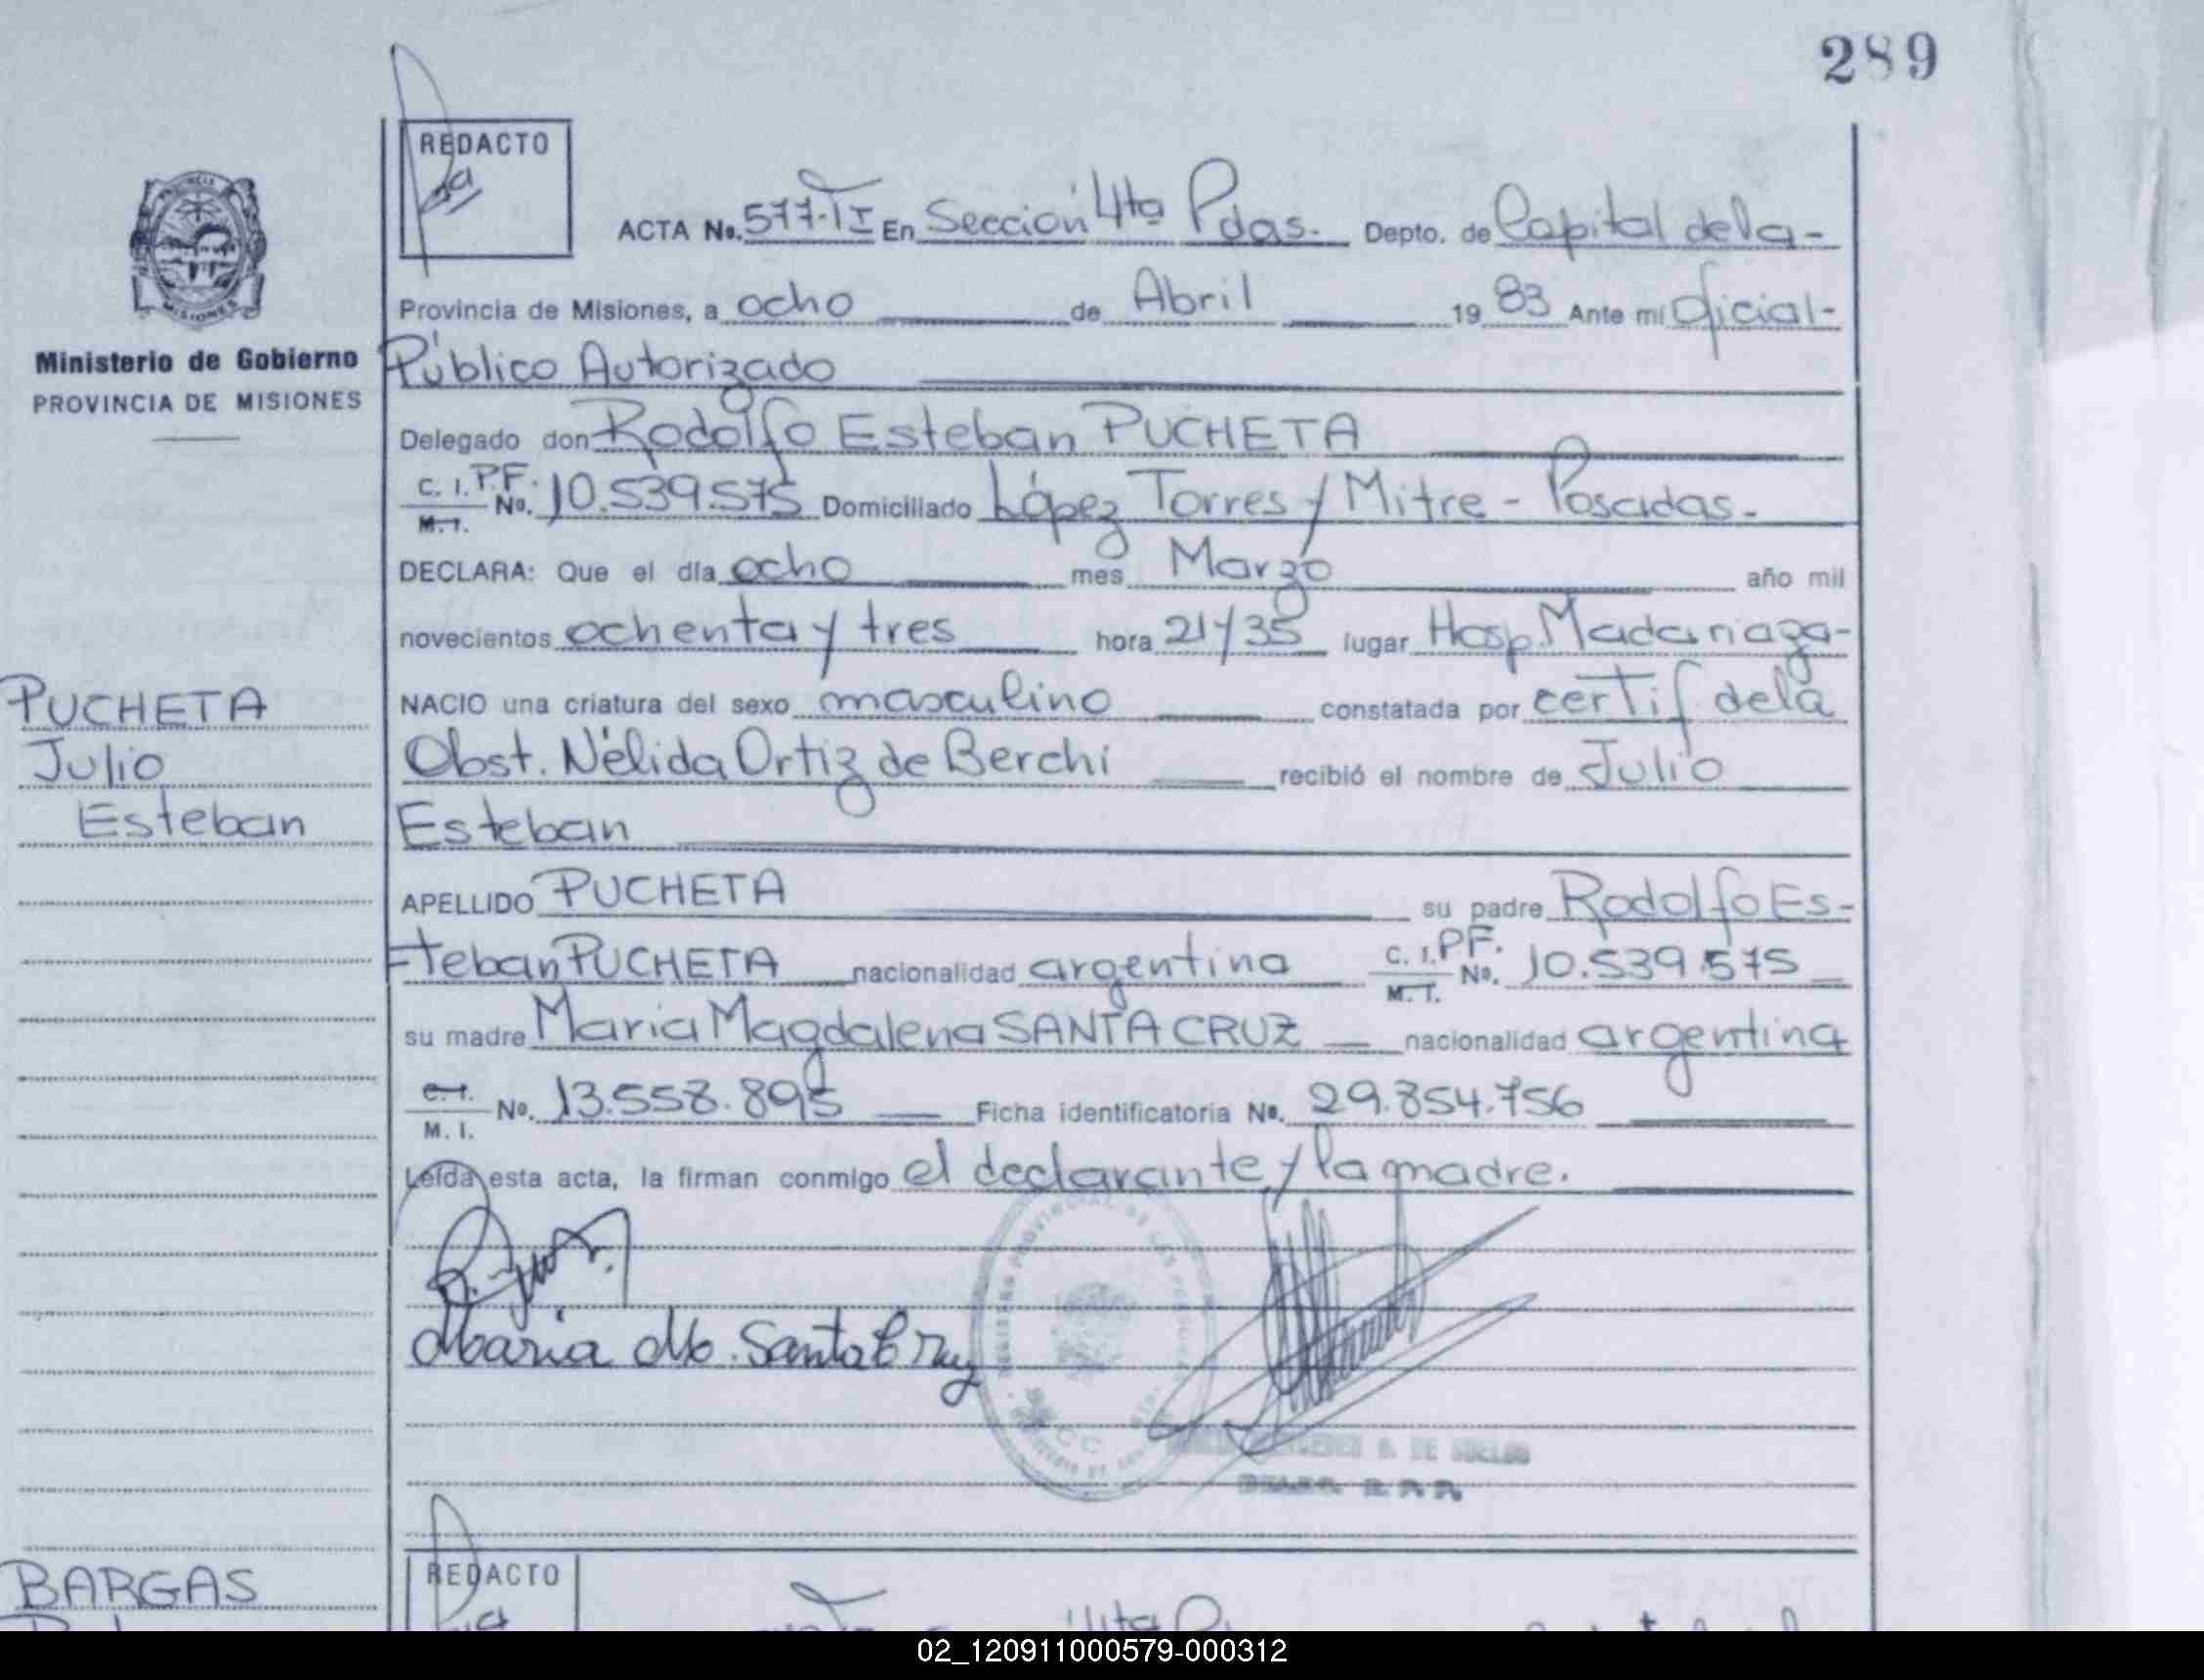 289
REDACTO
ACTA No. 577-II En Sección 4ta Pdas. Depto. de Capital de la-
Provincia de Misiones, a ocho de Abril 19 83 Ante mí Oficial-
Ministerio de Gobierno
PROVINCIA DE MISIONES
Público Autorizado
Delegado don Rodolfo Esteban PUCHETA
C. I. P.F. M. I. No. 10.539.575 Domiciliado López Torres y Mitre - Posadas.-
DECLARA: Que el día ocho mes Marzo año mil
novecientos ochenta y tres hora 21 y 35 lugar Hosp. Madariaga-
PUCHETA
Julio
Esteban
NACIO una criatura del sexo masculino constatada por certif de la
Obst. Nélida Ortiz de Berchi recibió el nombre de Julio
Esteban
APELLIDO PUCHETA su padre Rodolfo Es-
teban PUCHETA nacionalidad argentina C. I. PF. M. I. No. 10.539.575
su madre María Magdalena SANTA CRUZ nacionalidad argentina
C. I. M. I. No. 13.558.895 Ficha identificatoria No. 29.854.756
Leída esta acta, la firman conmigo el declarante y la madre.
Maria M. Santa Cruz
BARGAS
REDACTO
02_120911000579-000312